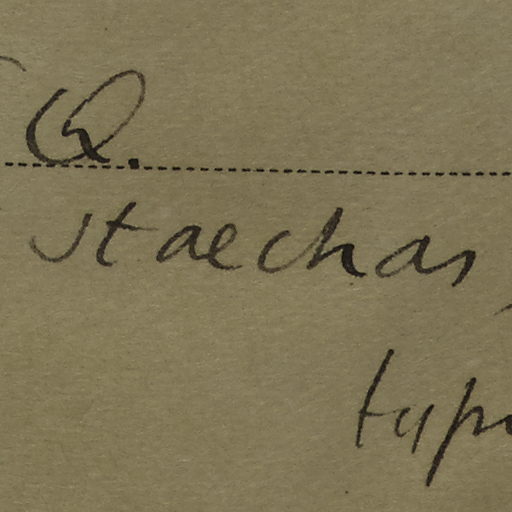 Q.
staechas,
typ